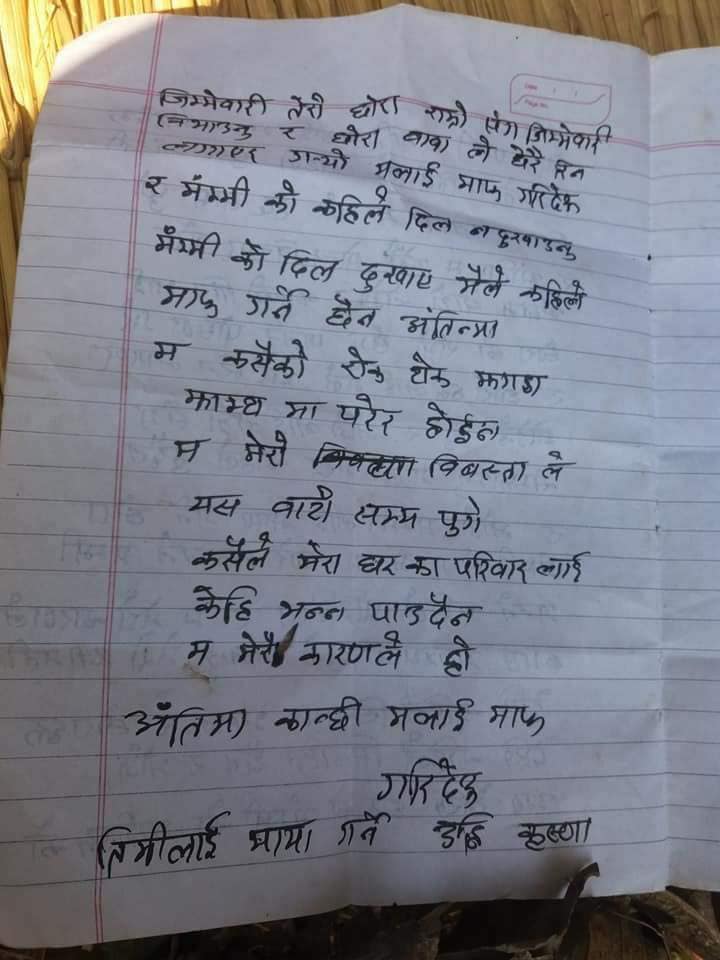 जिम्मेवारी तेरो छोरा राम्रो संग जिम्मेवारी
निभाउनु र छोरा बाबा ले धेरै रिन
लगाएर गर्यो मलाई माफ गरिदेऊ
र मंम्मी को कहिले दिल न दुखाउनु
मंम्मी को दिल दुखाए मैले कहिले
माफ गर्ने छैन अंतिन्मा
म कसैको रोक थोक झगडा
झाम्य मा परेर होईन
म मेरो विबस्ता ले
यस बाटो सम्म पुगे
कसैले मेरा घर का परिवार लाई
केहि भन्न पाउदैन
म मेरो कारणले हो
अंतिमा कान्छी मलाई माफ
गरिदेऊ
तिमीलाई माया गर्ने उहि कृष्णा